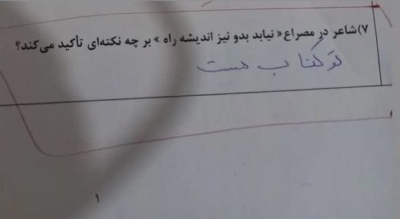 ۷)شاعر در مصراع « نیابد بدو نیز اندیشه راه » بر چه نکته‌ای تأکید می‌کند؟
تو کتاب هست
۱